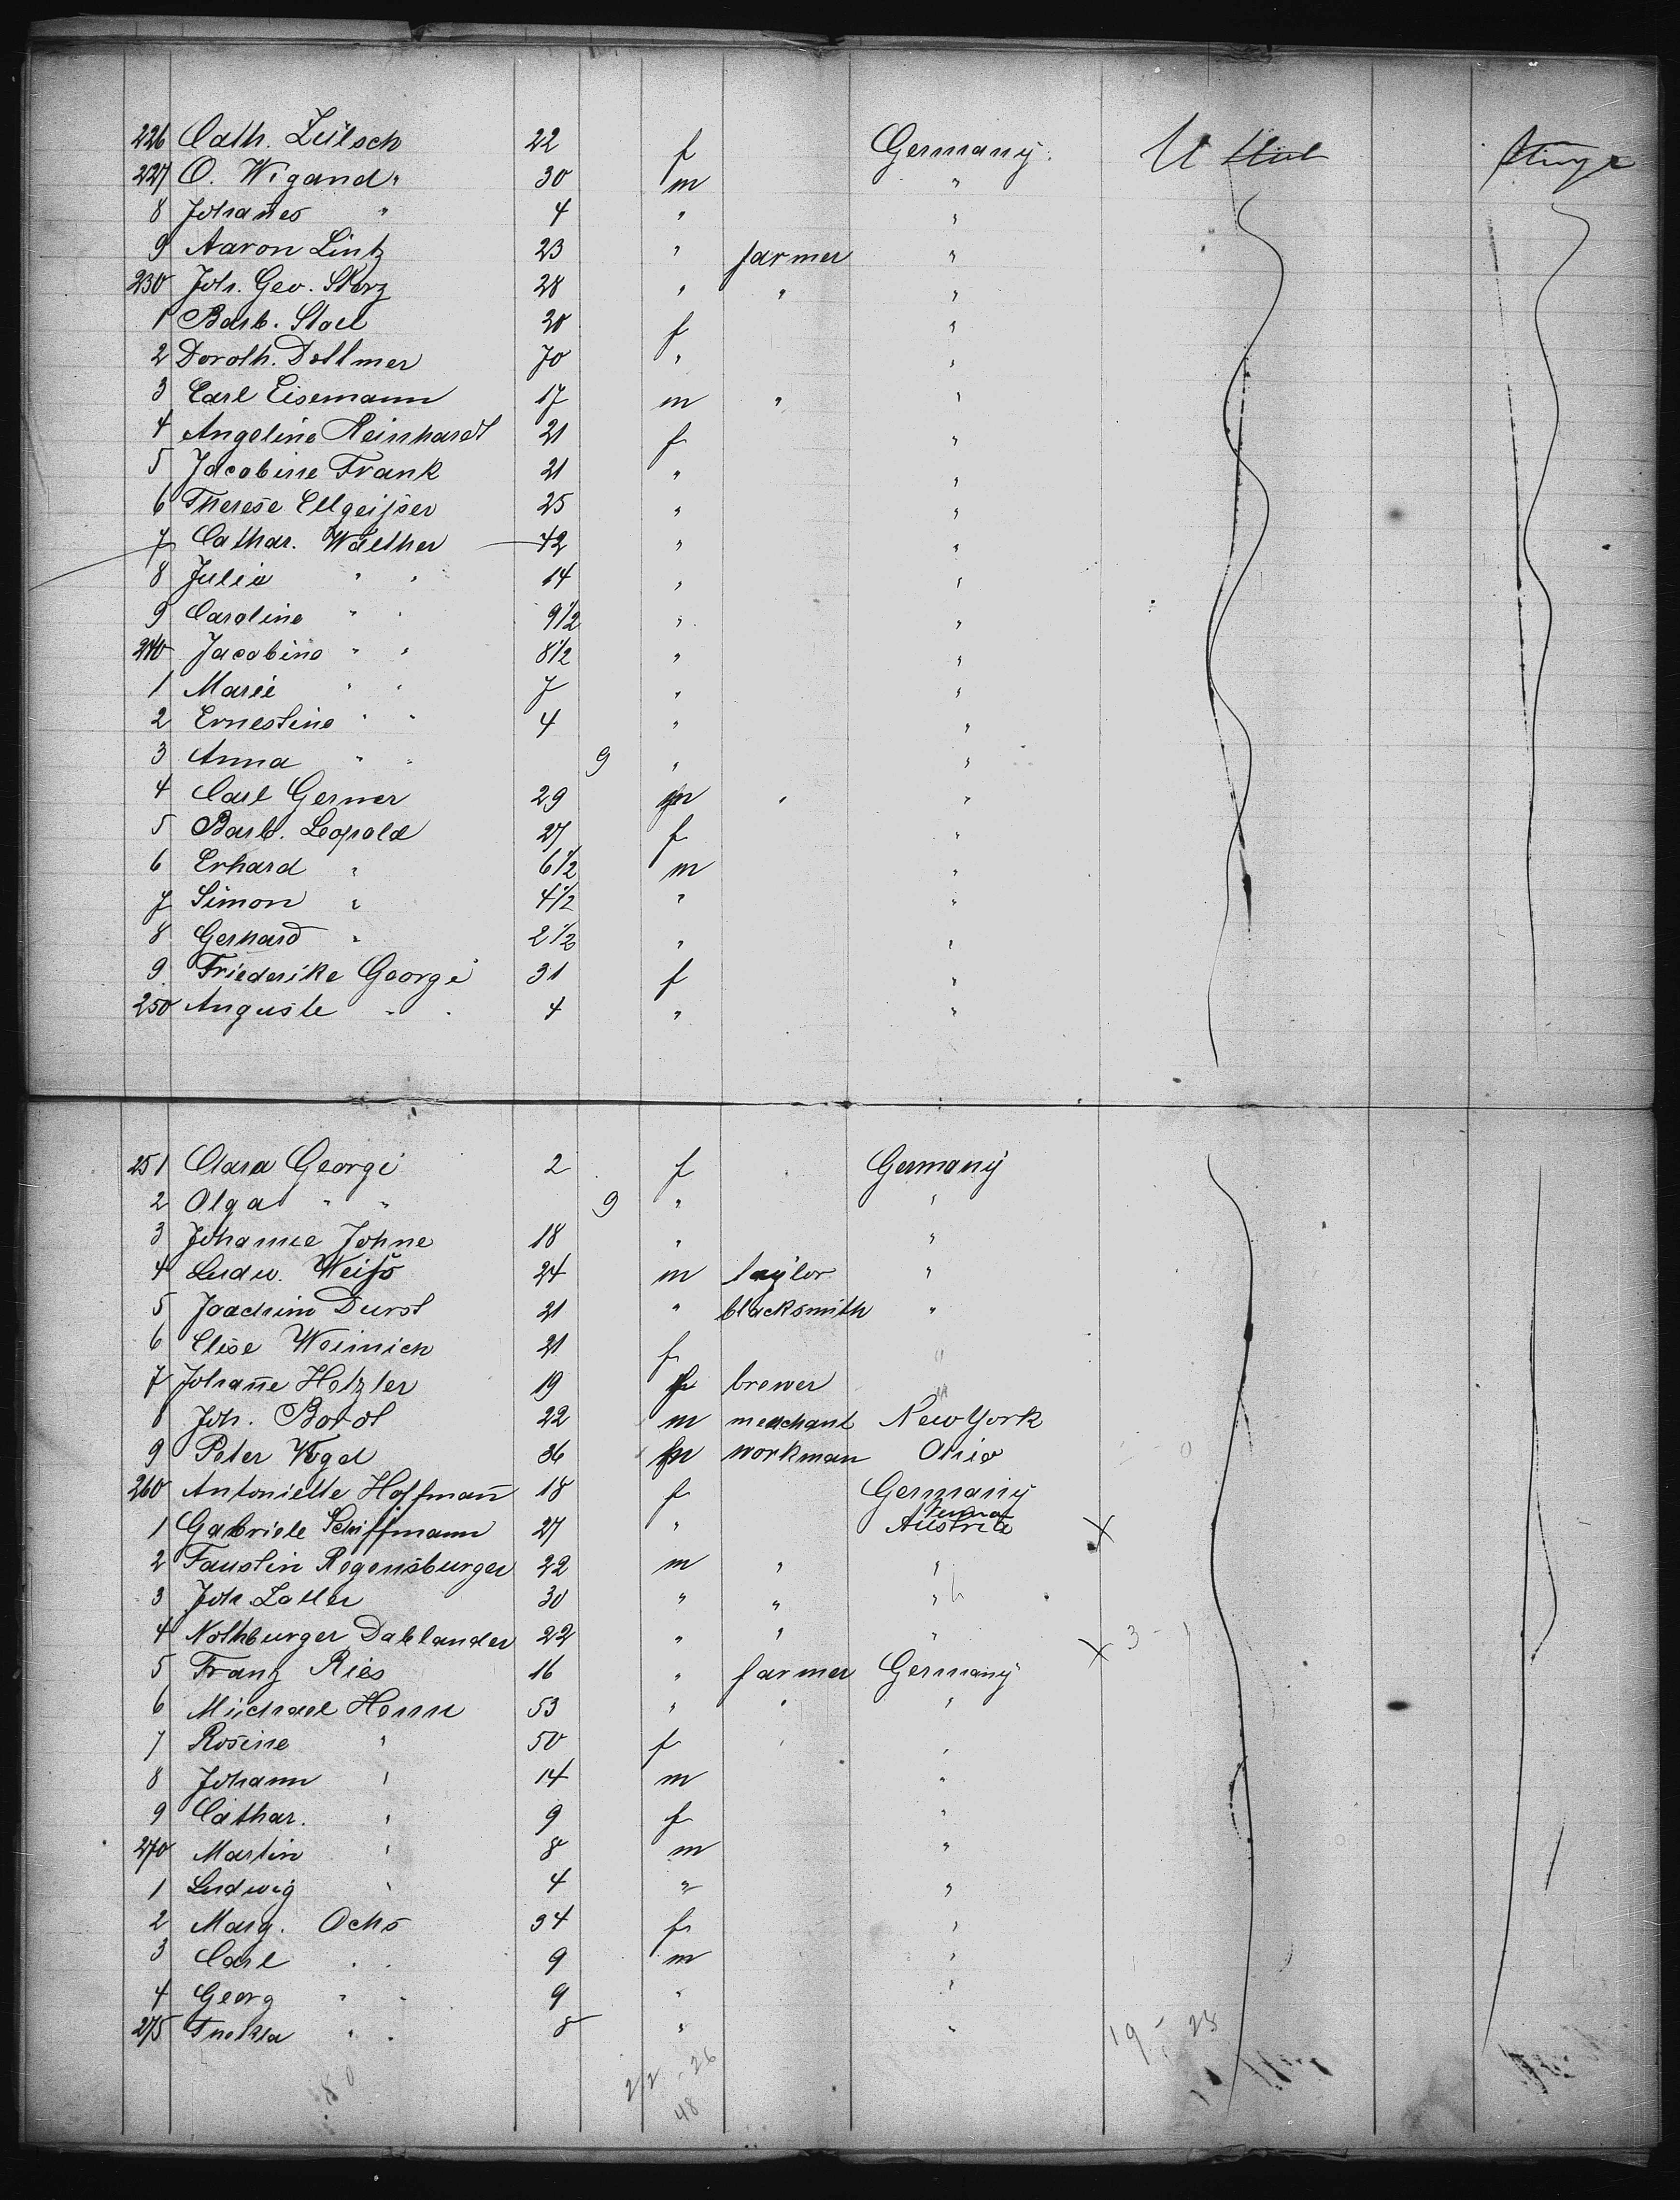 226 Cath. Zülsch 22 f Germany. U Stat Steerage
227 O. Wigand " 30 m "
8 Johanes " 4 " "
9 Aaron Lintz 23 " farmer "
230 Joh. Geo. Storz 28 " " "
1 Barb. Stoll 20 f "
2 Doroth. Dollmer 70 " "
3 Carl Eisemann 17 m " "
4 Angeline Reinhardt 21 f "
5 Jacobine Frank 21 " "
6 Therese Ellgeißer 25 " "
7 Cathar. Walther 42 " "
8 Julie " " 14 " "
9 Caroline " " 9 1/2 " "
240 Jacobine " " 8 1/2 " "
1 Marie " " 7 " "
2 Ernestine " " 4 " "
3 Anna " " 9 " "
4 Carl Gerner 29 m " "
5 Barb. Leopold 27 f "
6 Erhard " 6 1/2 m "
7 Simon " 4 1/2 " "
8 Gerhard " 2 1/2 " "
9 Friederike Georgi 31 f "
250 Auguste " " 4 " "
251 Clara Georgi 2 f Germany
2 Olga " " 9 " "
3 Johanne Johne 18 " "
4 Ludw. Weiß 24 m taylor "
5 Joachim Durst 21 " blacksmith "
6 Elise Weinich 21 f "
7 Johañe Hetzler 19 brewer "
8 Joh. Bordt 22 m merchant New York
9 Peter Vogel 36 m workman Ohio
260 Antonielle Hoffmañ 18 f Germany
1 Gabriele Schiffmann 27 " Austria X
2 Faustin Regensburger 22 m " "
3 Joh. Zoller 30 " " "
4 Nothburger Dablander 22 " " " X 3 -
5 Franz Ries 16 " farmer Germany
6 Michael Henn 53 " " "
7 Rosine " 50 f "
8 Johann " 14 m "
9 Cathar. " 9 f "
270 Martin " 8 m "
1 Ludwig " 4 " "
2 Marg. Ochs 34 f "
3 Carl " " 9 m "
4 Georg " " 9 " "
275 Thekla " " 8 " "
19 - 23
22 - 26
48